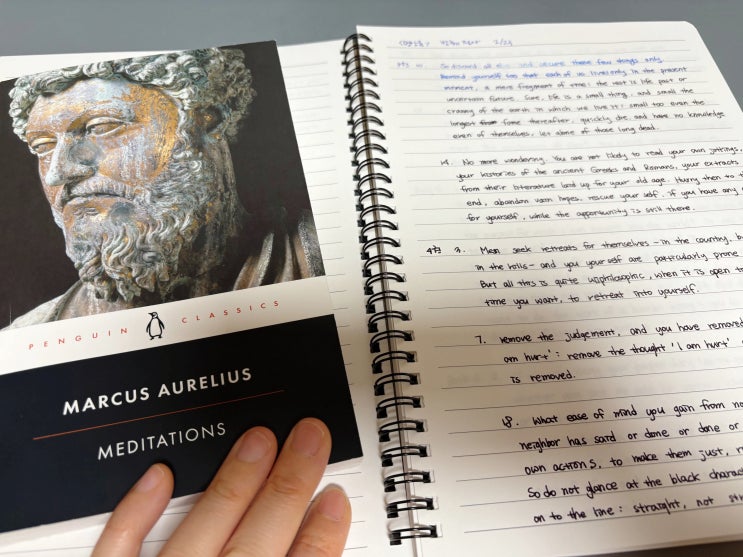 PENGUIN CLASSICS
MARCUS AURELIUS
MEDITATIONS
2/23
So discard all else and secure these few things only.
Remind yourself too that each of us lives only in the present
moment, a mere fragment of time: the rest is life past or
uncertain future. Sure, life is a small thing, and small the
cranny of the earth in which we live it: small too even the
longest fame thereafter, quickly die and have no knowledge
even of themselves, let alone of those long dead.
14. No more wondering. You are not likely to read your own jottings,
your histories of the ancient Greeks and Romans, your extracts
from their literature laid up for your old age. Hurry then to the
end, abandon vain hopes, rescue yourself, if you have any
for yourself, while the opportunity is still there.
4권 3. Men seek retreats for themselves - in the country, b
in the hills - and you yourself are particularly prone
But all this is quite unphilosophic, when it is open t
time you want, to retreat into yourself.
7. remove the judgement, and you have removed
am hurt': remove the thought 'I am hurt'
is removed.
18. What ease of mind you gain from no
neighbor has said or done or done or
own actions, to make them just, r
So do not glance at the black charac
on to the line: straight, not str